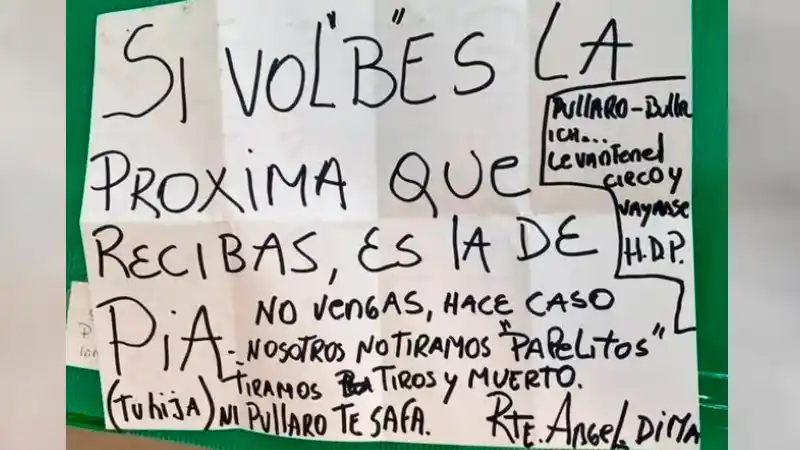 SI VOL"B"ES LA
PROXIMA QUE
RECIBAS, ES LA DE
PIA - NO VENGAS, HACE CASO
NOSOTROS NO TIRAMOS "PAPELITOS"
TIRAMOS TIROS Y MUERTO.
(TU hija) NI PULLARO TE SAFA.
RTE. ANGEL. DIMA
PULLARO - Bullr
ICH...
LEVANTEN el
CIRCO Y
VAYANSE
H.D.P.